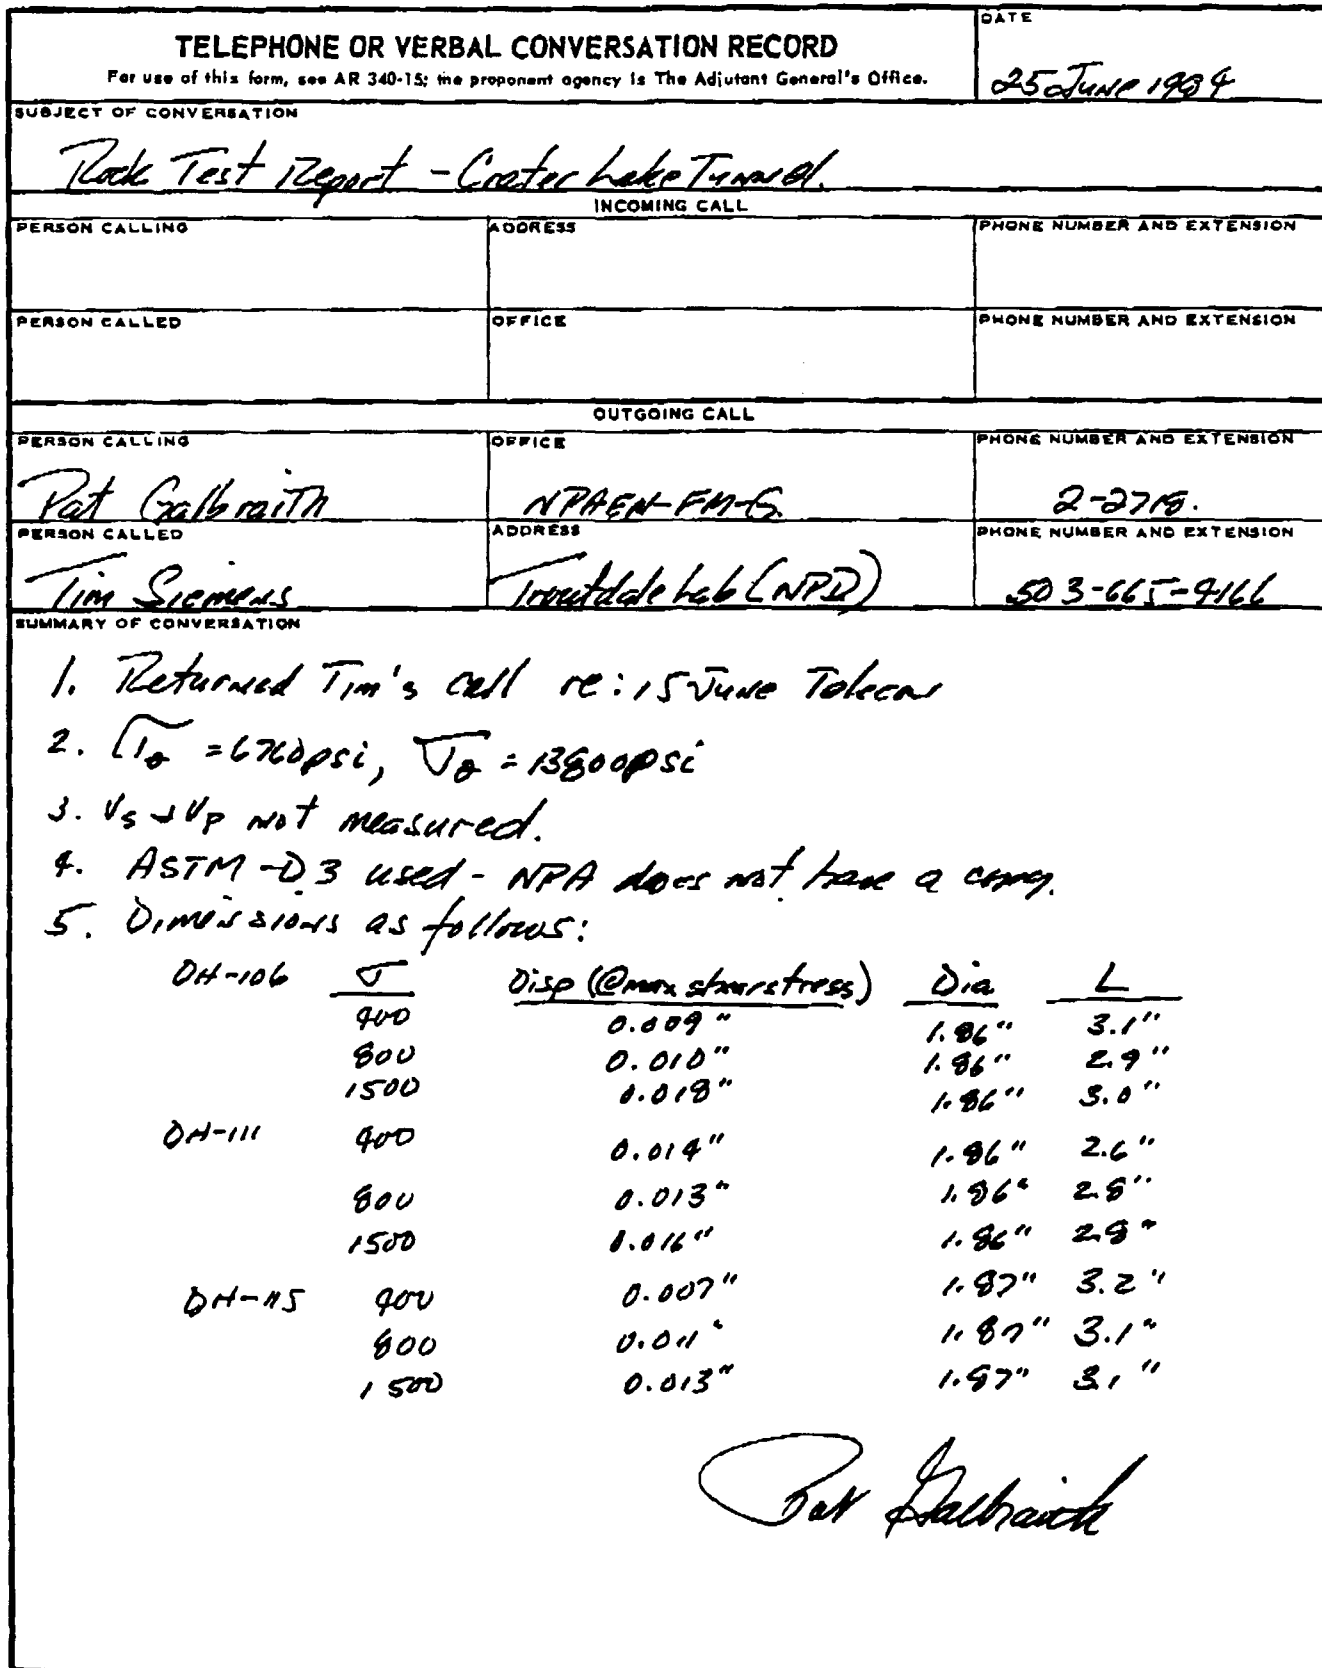 TELEPHONE OR VERBAL CONVERSATION RECORD
For use of this form, see AR 340-15; the proponent agency is The Adjutant General's Office.
DATE
25 June 1984
SUBJECT OF CONVERSATION
Rock Test Report - Crater Lake Tunnel.
INCOMING CALL
PERSON CALLING
ADDRESS
PHONE NUMBER AND EXTENSION
PERSON CALLED
OFFICE
PHONE NUMBER AND EXTENSION
OUTGOING CALL
PERSON CALLING
OFFICE
PHONE NUMBER AND EXTENSION
Pat Galbraith
NPAEN-FM-G
2-2718.
PERSON CALLED
ADDRESS
PHONE NUMBER AND EXTENSION
Tim Siemens
Troutdale Lab (NPD)
503-665-4166
SUMMARY OF CONVERSATION
1. Returned Tim's call re: 15 June Telecon
2. = 6760psi, = 13800psi
3. Vs + Vp not measured.
4. ASTM-D3 used - NPA does not have a copy.
5. Dimensions as follows:
DH-106 σ Disp (@max shear stress) Dia L
400 0.009" 1.86" 3.1"
800 0.010" 1.86" 2.9"
1500 0.018" 1.86" 3.0"
DH-111 400 0.014" 1.86" 2.6"
800 0.013" 1.86" 2.8"
1500 0.016" 1.86" 2.8"
DH-115 400 0.007" 1.87" 3.2"
800 0.011" 1.87" 3.1"
1500 0.013" 1.87" 3.1"
Pat Galbraith